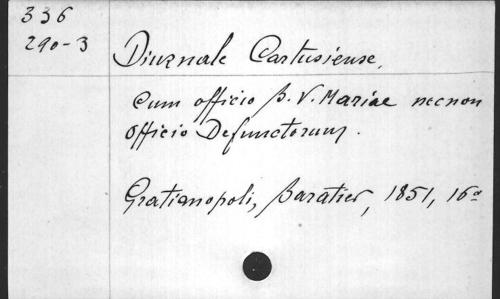 336
290-3
Diurnale Cartusiense.
Cum officio B. V. Mariae necnon
Officio Defunctorum.
Gratianopoli, Baratier, 1851, 16º